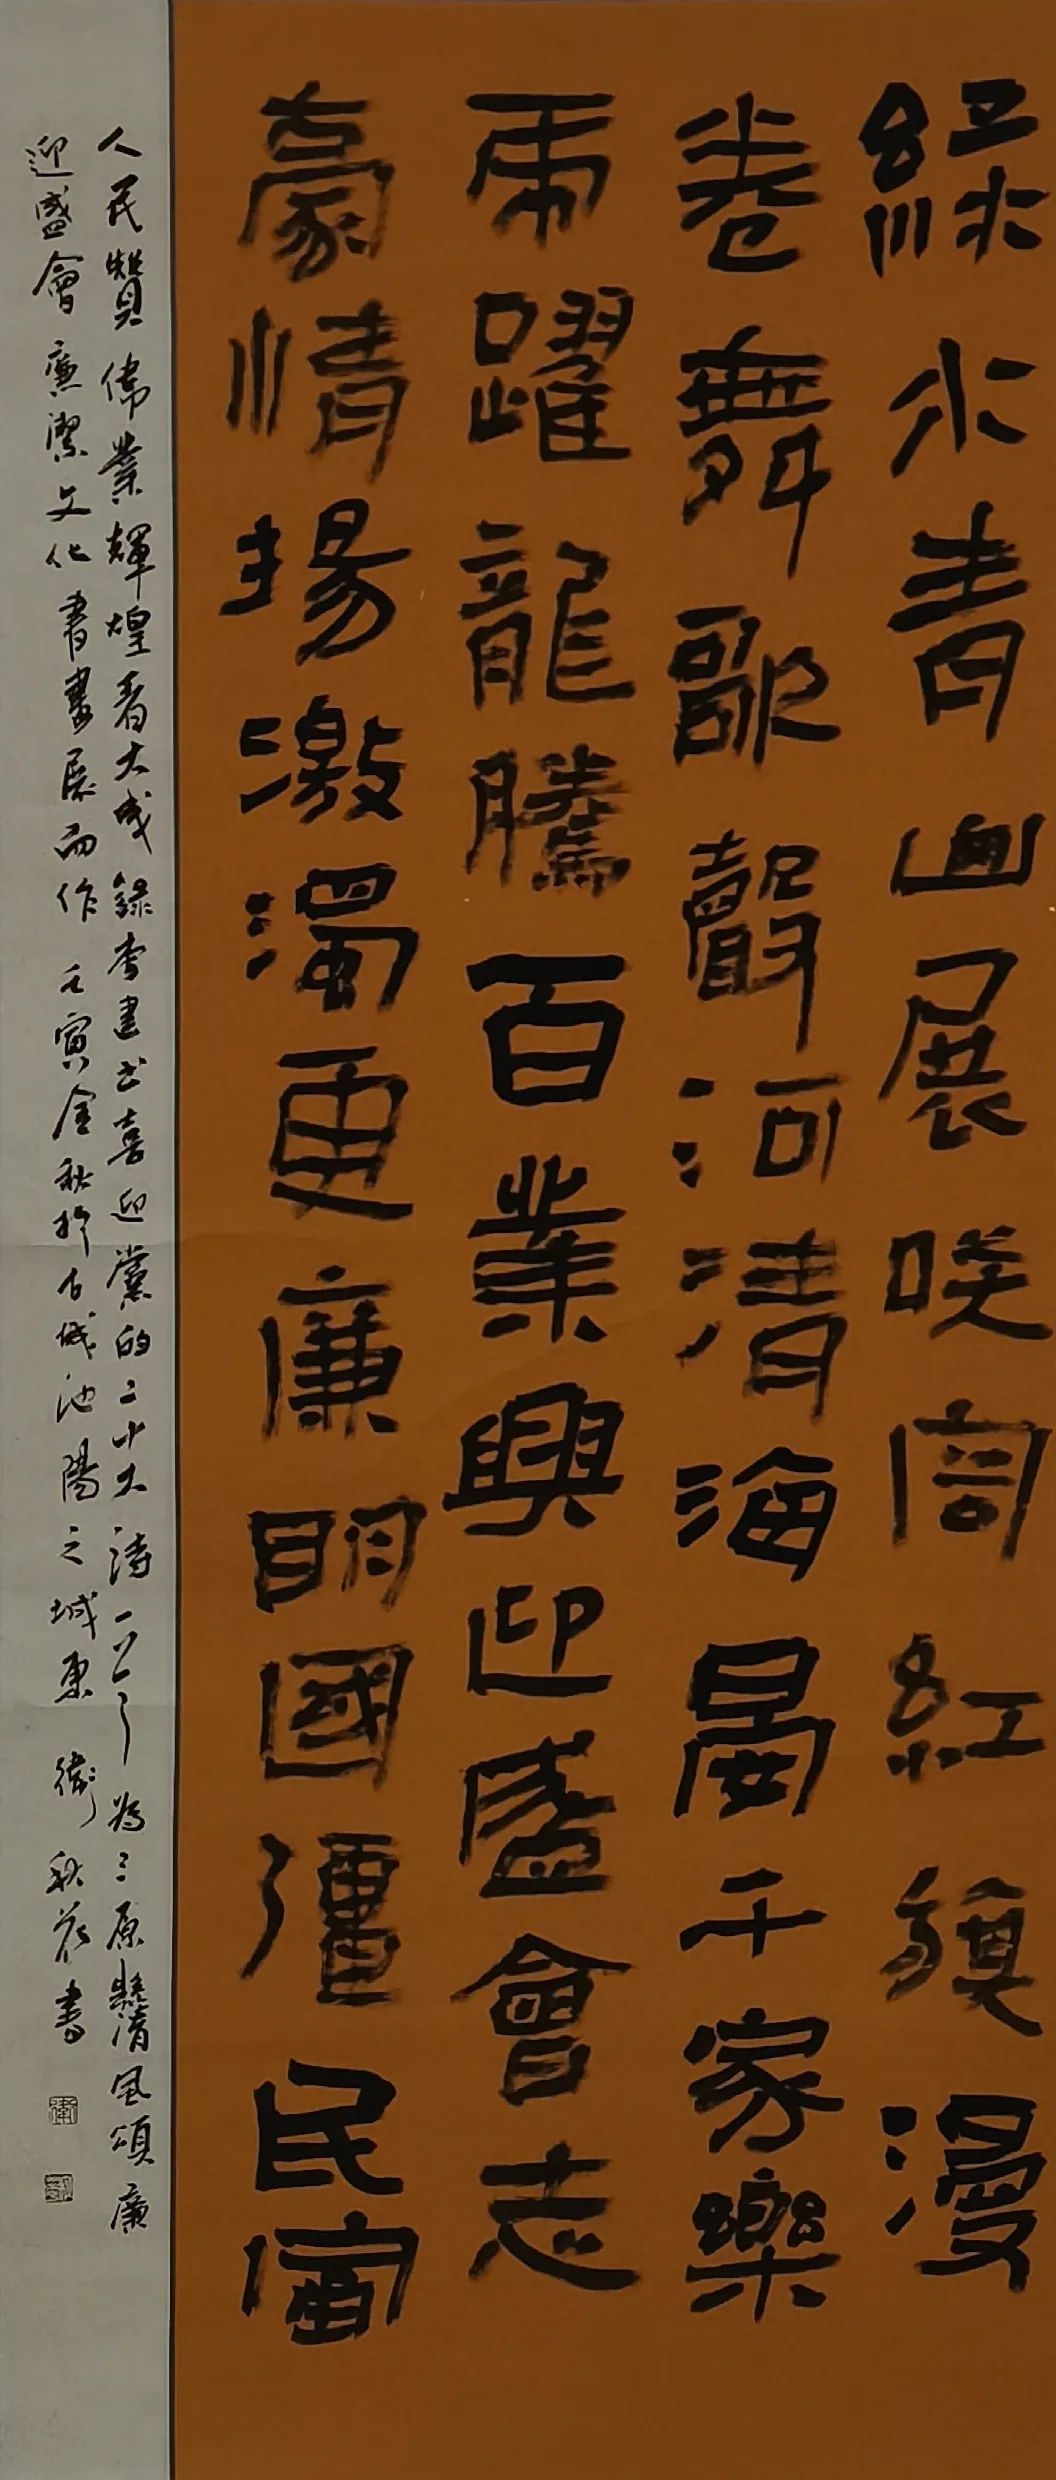 綠水青山展咲容紅旗漫
卷舞歌聲河清海晏千家樂
虎躍龍騰百業興迎盛會志
豪情揚激濁更廉明國彊民富
人民贊偉業輝煌看大成錄李建喜迎黨的二十大詩一首為三原縣清風頌廉
迎盛會廉潔文化書畫展而作壬寅金秋於古城池陽之城東衛秋花書